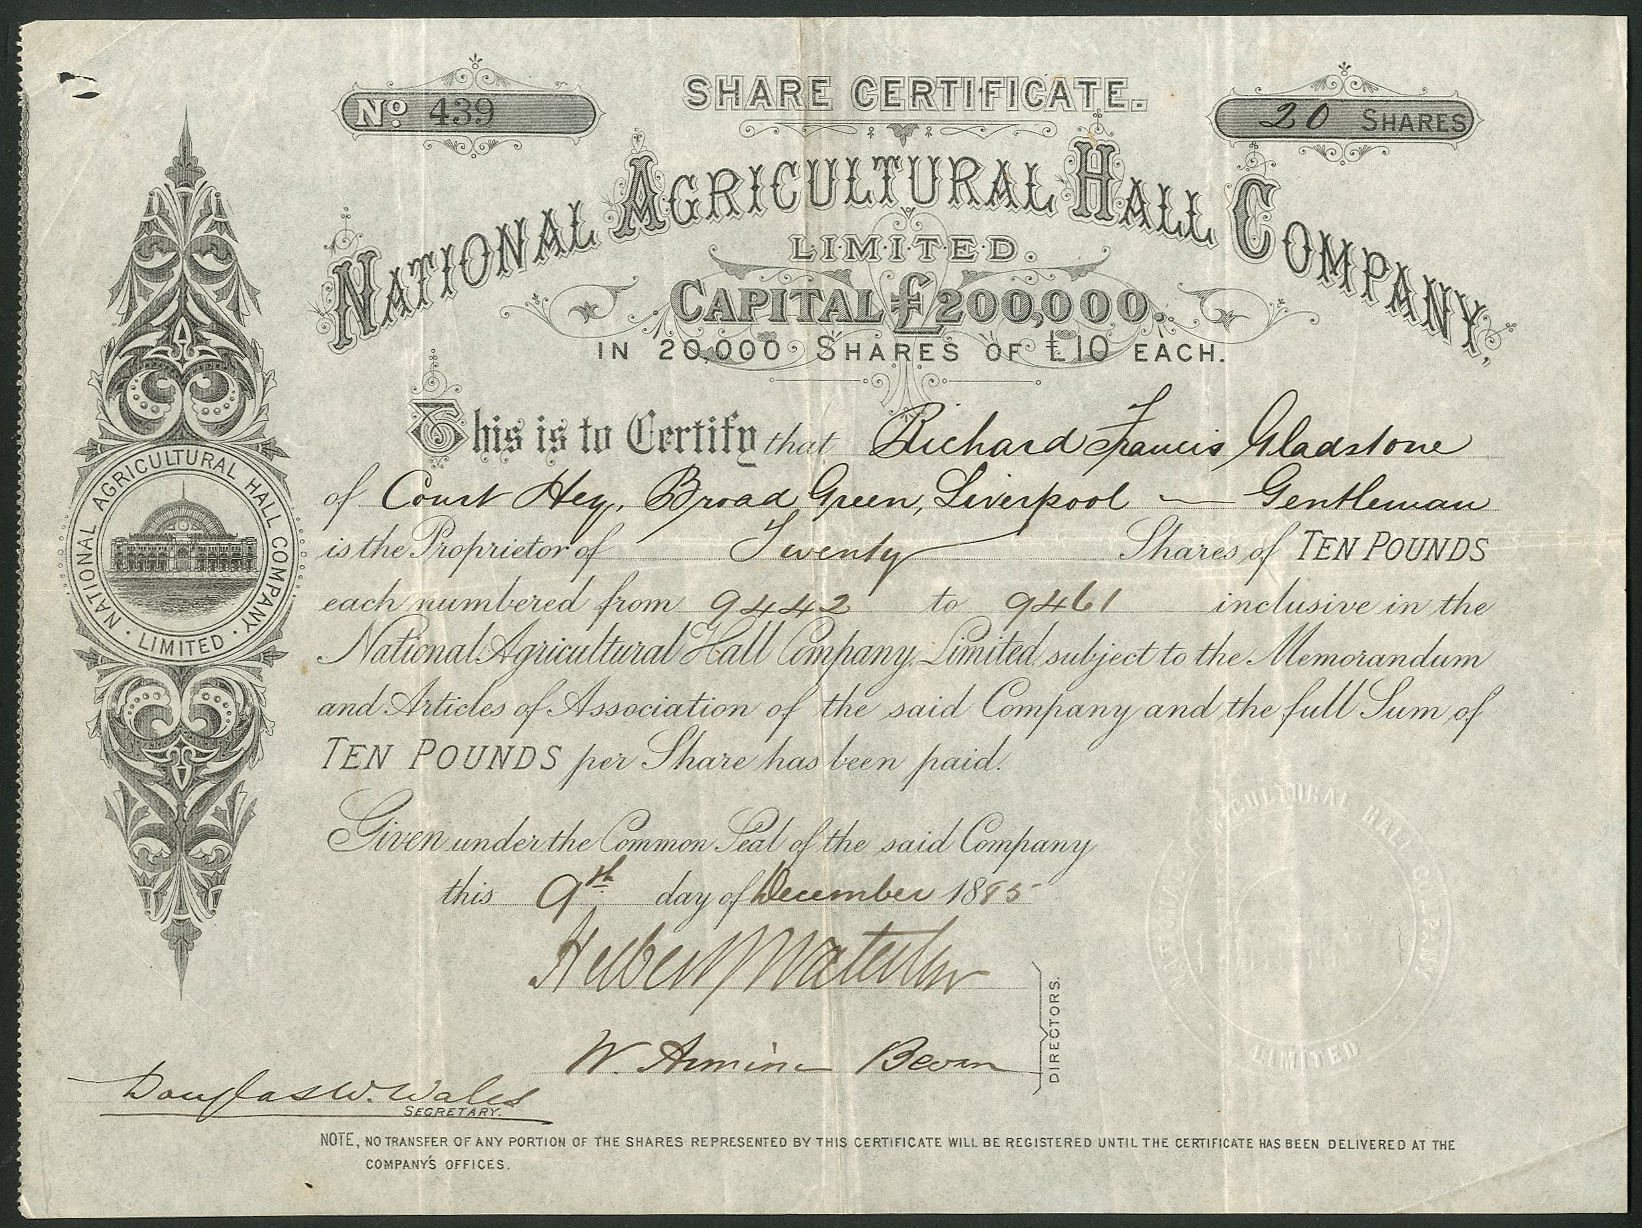 SHARE CERTIFICATE.
No. 439
20 SHARES
NATIONAL AGRICULTURAL HALL COMPANY,
LIMITED.
CAPITAL £200,000.
IN 20,000 SHARES OF £10 EACH.
This is to Certify that Richard Francis Gladstone
of Court Hey, Broad Green, Liverpool — Gentleman
is the Proprietor of Twenty Shares of TEN POUNDS
each numbered from 9442 to 9461 inclusive in the
National Agricultural Hall Company, Limited, subject to the Memorandum
and Articles of Association of the said Company and the full Sum of
TEN POUNDS per Share has been paid.
Given under the Common Seal of the said Company
this 9th day of December 1885
Herbert J Waterlow
W. Armine Bevan
DIRECTORS.
Douglas W. Wales
SECRETARY.
NOTE, NO TRANSFER OF ANY PORTION OF THE SHARES REPRESENTED BY THIS CERTIFICATE WILL BE REGISTERED UNTIL THE CERTIFICATE HAS BEEN DELIVERED AT THE
COMPANY'S OFFICES.
NATIONAL AGRICULTURAL HALL COMPANY
· LIMITED ·
AGRICULTURAL HALL COMPANY
LIMITED